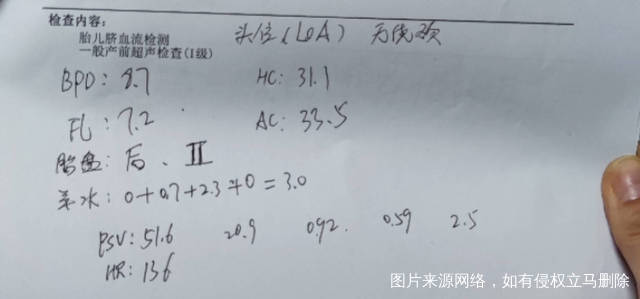 检查内容:
胎儿脐血流检测 头位(LOA) 无绕颈
一般产前超声检查(I级)
BPD: 8.7 HC: 31.1
FL: 7.2 AC: 33.5
胎盘: 后、Ⅱ
羊水: 0+0.7+2.3+0=3.0
PSV: 51.6 20.9 0.92. 0.59 2.5
HR: 136
图片来源网络,如有侵权立马删除